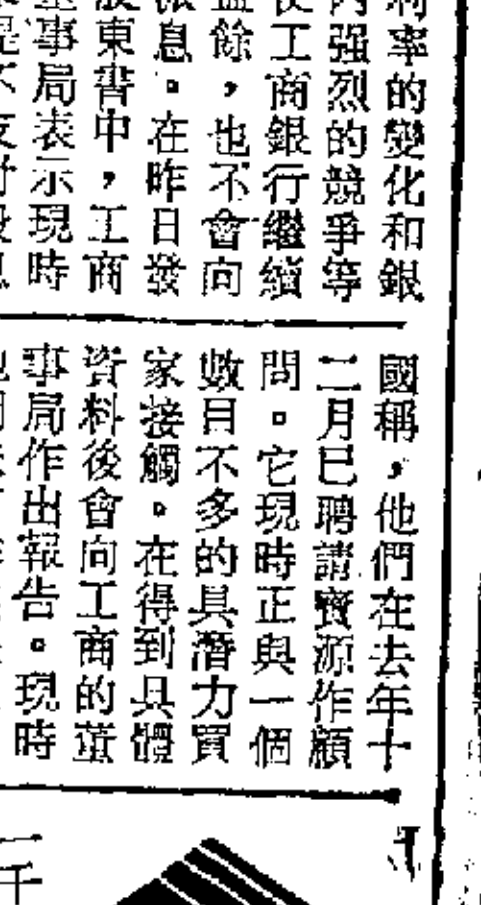 利率的變化和銀
內强烈的競爭等
使工商銀行繼續
盈餘，也不會向
派息。在昨日發
股東書中，工商
董事局表示現時
國稱，他們在去年十
二月已聘請寳源作顧
問。它現時正與一個
數目不多的具潛力買
家接觸。在得到具體
資料後會向工商的董
事局作出報告。現時
一千